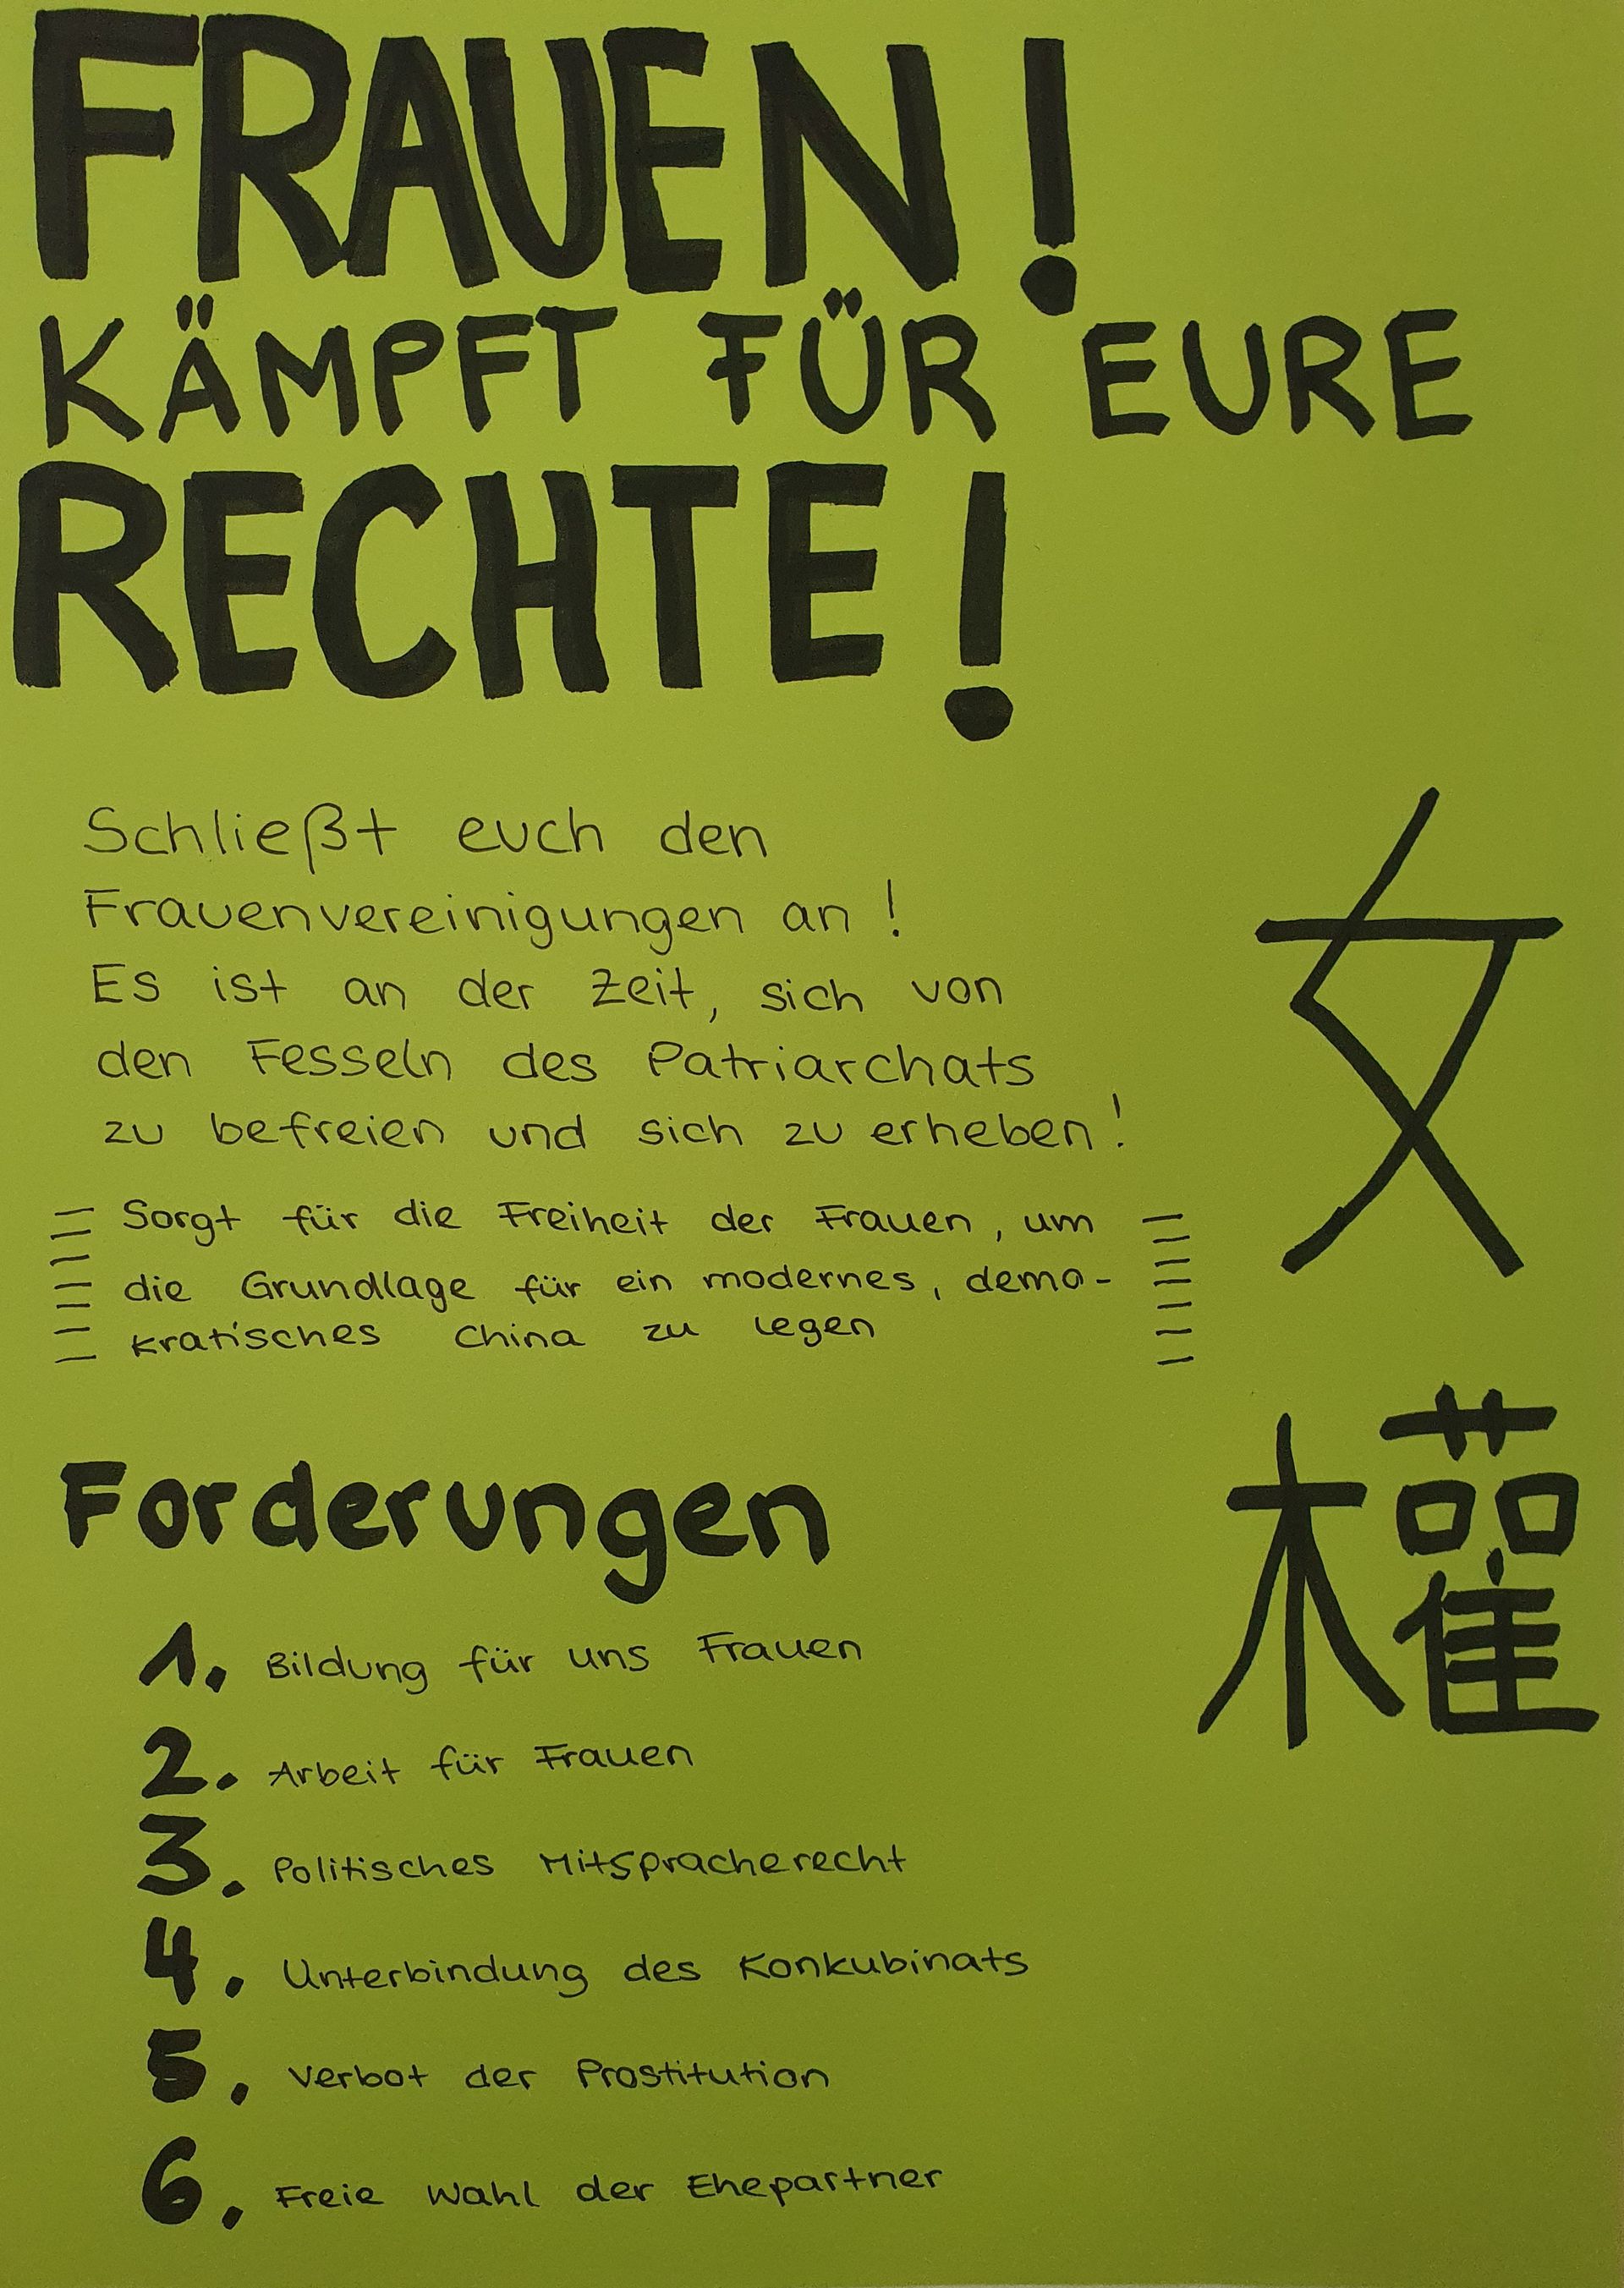 FRAUEN!
KÄMPFT FÜR EURE
RECHTE!
Schließt euch den
Frauenvereinigungen an!
Es ist an der Zeit, sich von
den Fesseln des Patriarchats
zu befreien und sich zu erheben!
Sorgt für die Freiheit der Frauen, um
die Grundlage für ein modernes, demo-
kratisches China zu legen
女
權
Forderungen
1. Bildung für uns Frauen
2. Arbeit für Frauen
3. Politisches Mitspracherecht
4. Unterbindung des Konkubinats
5. Verbot der Prostitution
6. Freie Wahl der Ehepartner